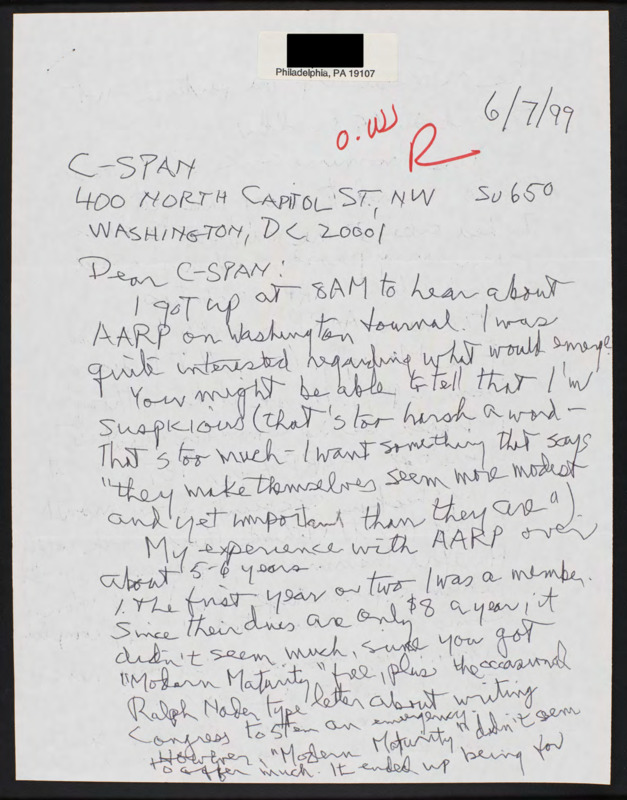 Philadelphia, PA 19107
6/7/99
O.W
R
C-SPAN
400 NORTH CAPITOL ST, NW SU 650
WASHINGTON, DC 20001
Dear C-SPAN:
I got up at 8AM to hear about
AARP on Washington Journal. I was
quite interested regarding what would emerge.
You might be able to tell that I'm
suspicious (that's too harsh a word -
That's too much - I want something that says
"they make themselves seem more modest
and yet important than they are").
My experience with AARP over
about 5-6 years.
1. The first year or two I was a member.
Since their dues are only $8 a year, it
didn't seem much, since you got
"Modern Maturity" free, plus the occasional
Ralph Nader type letter about writing
Congress to stem an emergency.
However, "Modern Maturity" didn't seem
to offer much. It ended up being for